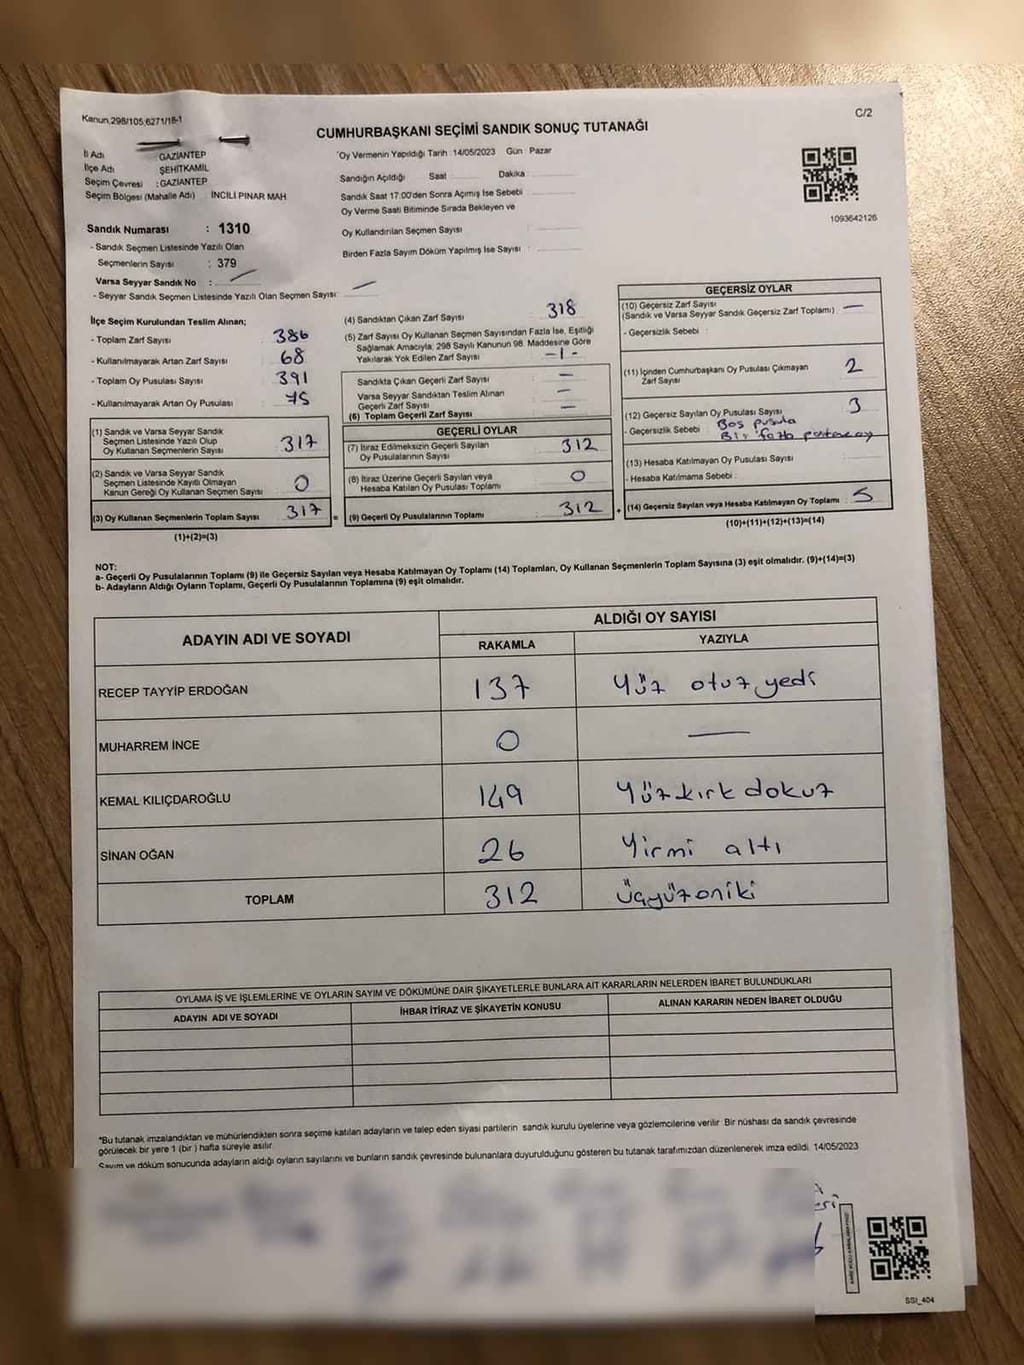 Kanun,298/105,6271/18-1
C/2
CUMHURBAŞKANI SEÇİMİ SANDIK SONUÇ TUTANAĞI
İl Adı GAZİANTEP
İlçe Adı ŞEHİTKAMİL
Seçim Çevresi : GAZİANTEP
Seçim Bölgesi (Mahalle Adı) İNCİLİ PINAR MAH
Sandık Numarası : 1310
- Sandık Seçmen Listesinde Yazılı Olan
Seçmenlerin Sayısı : 379
Varsa Seyyar Sandık No :
- Seyyar Sandık Seçmen Listesinde Yazılı Olan Seçmen Sayısı:
Oy Vermenin Yapıldığı Tarih :14/05/2023 Gün : Pazar
Sandığın Açıldığı Saat Dakika :
Sandık Saat 17:00'den Sonra Açmış İse Sebebi :
Oy Verme Saati Bitiminde Sırada Bekleyen ve
Oy Kullandırılan Seçmen Sayısı :
Birden Fazla Sayım Döküm Yapılmış İse Sayısı :
1093642126
İlçe Seçim Kurulundan Teslim Alınan;
- Toplam Zarf Sayısı : 386
- Kullanılmayarak Artan Zarf Sayısı : 68
- Toplam Oy Pusulası Sayısı : 391
- Kullanılmayarak Artan Oy Pusulası : 75
(1) Sandık ve Varsa Seyyar Sandık
Seçmen Listesinde Yazılı Olup
Oy Kullanan Seçmenlerin Sayısı : 317
(2) Sandık ve Varsa Seyyar Sandık
Seçmen Listesinde Kayıtlı Olmayan
Kanun Gereği Oy Kullanan Seçmen Sayısı : 0
(3) Oy Kullanan Seçmenlerin Toplam Sayısı : 317
(1)+(2)=(3)
(4) Sandıktan Çıkan Zarf Sayısı : 318
(5) Zarf Sayısı Oy Kullanan Seçmen Sayısından Fazla İse, Eşitliği
Sağlamak Amacıyla; 298 Sayılı Kanunun 98. Maddesine Göre
Yakılarak Yok Edilen Zarf Sayısı : -1-
Sandıkta Çıkan Geçerli Zarf Sayısı : —
Varsa Seyyar Sandıktan Teslim Alınan
Geçerli Zarf Sayısı : —
(6) Toplam Geçerli Zarf Sayısı : —
GEÇERLİ OYLAR
(7) İtiraz Edilmeksizin Geçerli Sayılan
Oy Pusulalarının Sayısı : 312
(8) İtiraz Üzerine Geçerli Sayılan veya
Hesaba Katılan Oy Pusulası Toplamı : 0
= (9) Geçerli Oy Pusulalarının Toplamı : 312
GEÇERSİZ OYLAR
(10) Geçersiz Zarf Sayısı : —
(Sandık ve Varsa Seyyar Sandık Geçersiz Zarf Toplamı)
- Geçersizlik Sebebi :
(11) İçinden Cumhurbaşkanı Oy Pusulası Çıkmayan
Zarf Sayısı : 2
(12) Geçersiz Sayılan Oy Pusulası Sayısı : 3
- Geçersizlik Sebebi : Boş pusula
Bir fazla
(13) Hesaba Katılmayan Oy Pusulası Sayısı :
- Hesaba Katılmama Sebebi :
+ (14) Geçersiz Sayılan veya Hesaba Katılmayan Oy Toplamı : 5
(10)+(11)+(12)+(13)=(14)
NOT:
a- Geçerli Oy Pusulalarının Toplamı (9) ile Geçersiz Sayılan veya Hesaba Katılmayan Oy Toplamı (14) Toplamları, Oy Kullanan Seçmenlerin Toplam Sayısına (3) eşit olmalıdır. (9)+(14)=(3)
b- Adayların Aldığı Oyların Toplamı, Geçerli Oy Pusulalarının Toplamına (9) eşit olmalıdır.
ADAYIN ADI VE SOYADI
ALDIĞI OY SAYISI
RAKAMLA YAZIYLA
RECEP TAYYİP ERDOĞAN 137 Yüz otuz yedi
MUHARREM İNCE 0 —
KEMAL KILIÇDAROĞLU 149 Yüz kırk dokuz
SİNAN OĞAN 26 Yirmi altı
TOPLAM 312 üçyüzoniki
OYLAMA İŞ VE İŞLEMLERİNE VE OYLARIN SAYIM VE DÖKÜMÜNE DAİR ŞİKAYETLERLE BUNLARA AİT KARARLARIN NELERDEN İBARET BULUNDUKLARI
ADAYIN ADI VE SOYADI İHBAR İTİRAZ VE ŞİKAYETİN KONUSU ALINAN KARARIN NEDEN İBARET OLDUĞU
*Bu tutanak imzalandıktan ve mühürlendikten sonra seçime katılan adayların ve talep eden siyasi partilerin sandık kurulu üyelerine veya gözlemcilerine verilir. Bir nüshası da sandık çevresinde
görülecek bir yere 1 (bir) hafta süreyle asılır.
Sayım ve döküm sonucunda adayların aldığı oyların sayılarını ve bunların sandık çevresinde bulunanlara duyurulduğunu gösteren bu tutanak tarafımızdan düzenlenerek imza edildi. 14/05/2023
SSI_404